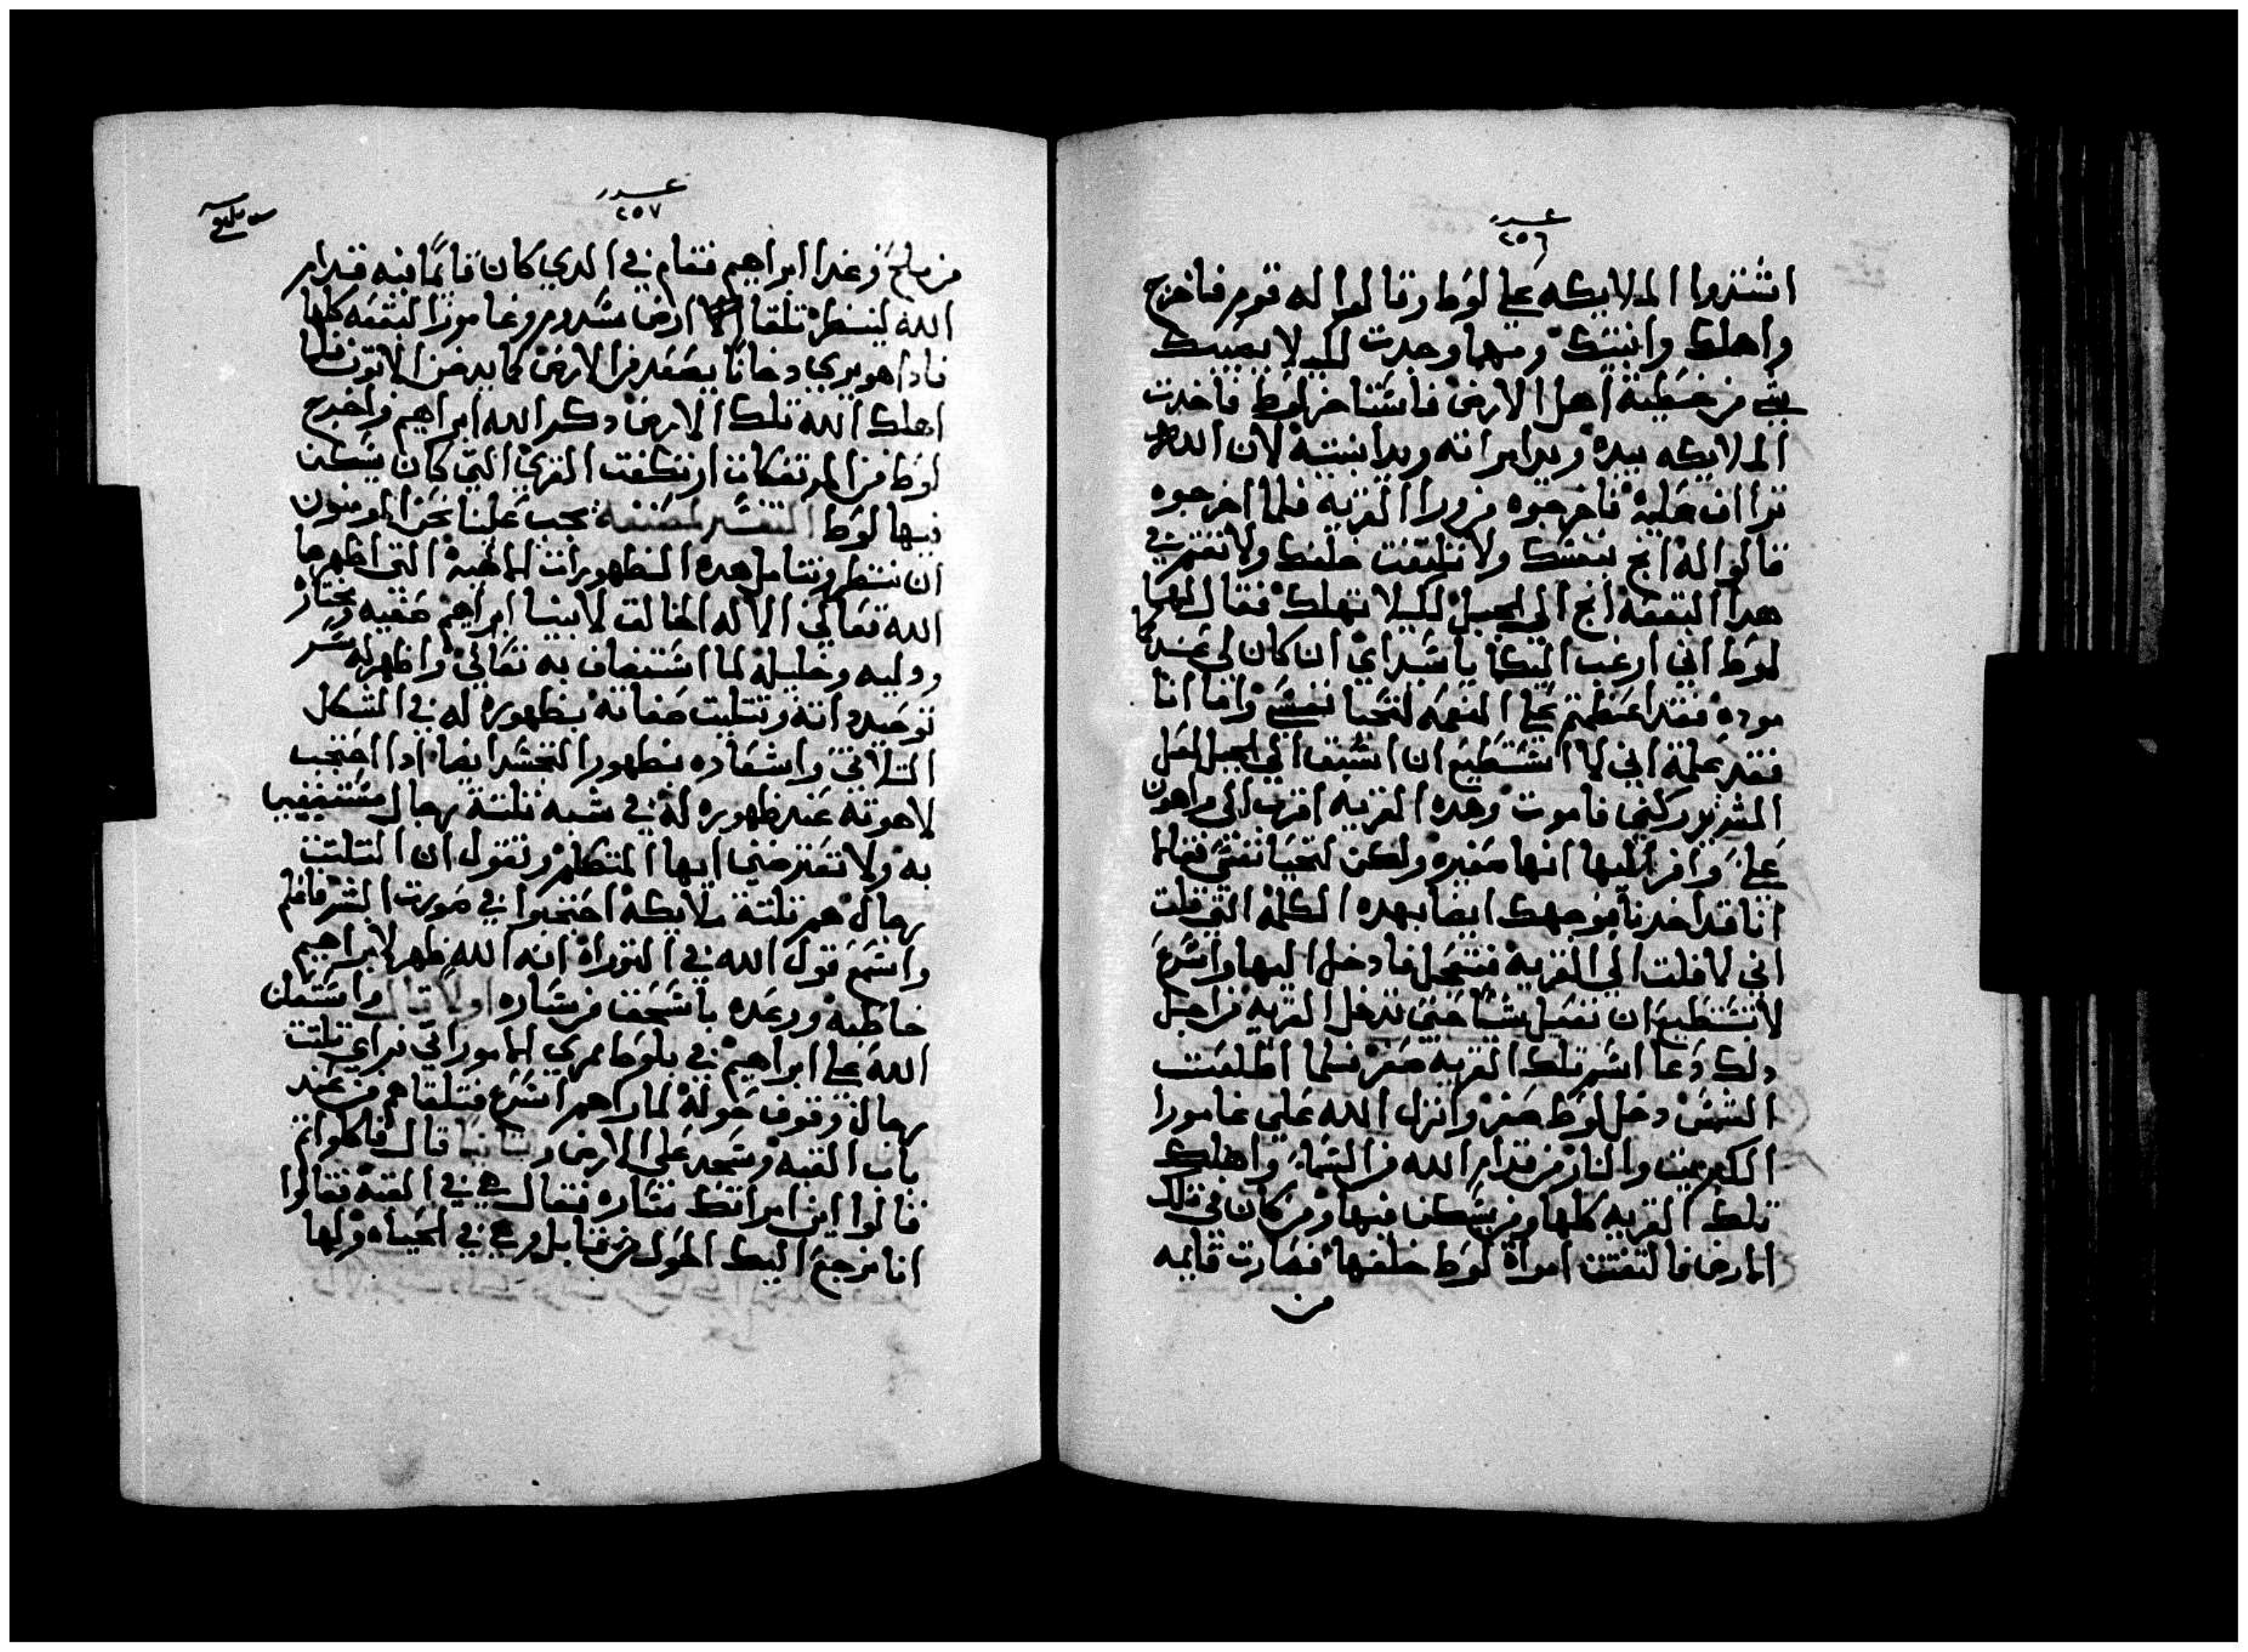 عدد
٢٥٦
اشتدوا الملايكه علي لوط وقالوا له قوم فاخرج
واهلك وابنتك ومهما وجدت لكيلا يصيبك
شي من خطية اهل الارض فاستاخر لوط فاخدت
الملايكه بيده ويد امراته ويد ابنتيه لان الله
تراف عليه فاخرجوه من ورا القريه فلما اخرجوه
قالوا له انج بنفسك ولا تلتفت خلفك ولا تقم في
هدا البقعه انج الي الجبل لكيلا تهلك فقال لهما
لوط اني ارغب اليكما يا سيداي ان كان لي عندكما
موده فقد اعظمتم علي النعمه لتحيا نفسي واما انا
فقد علمة اني لا استطيع ان اسبق الي الجبل لعل
الشر يدركني فاموت وهده القريه اقرب الي من اهون
علي وافر اليها انها صغيره ولكن لتحيا نفسي فقالا
انا قد اخدنا بوجهك ايضا بهده الكلمة التي قلت
اني لا قلت الي القريه فتعجل فادخل اليها واسرع
لا نستطيع ان نفعل شيا حتي تدخل القريه من اجل
دلك دعا اسم تلك القريه صغر فلما اطلعت
الشمس دخل لوط صغر وانزل الله علي غامورا
الكبريت والنار من قدام الله من السما واهلك
تلك القريه كلها ومن يسكن فيها ومن كان في تلك
الارض فالتفتت امراة لوط خلفها فصارت قايمه
من
عدد
٢٥٧
من ملح وغدا ابراهيم فقام في الدي كان قايمًا فيه قدام
الله لينظر تلقا ارض سدوم وغامورا البقعه كلها
فادا هو يري دخانا يصعد من الارض كما يدخن الاتون فلما
اهلك الله تلك الارض دكر الله ابراهيم واخرج
لوط من الموتفكات ارتكفت القري التي كان يسكن
فيها لوط التفسير لمصنفه يجب علينا نحن المومنون
ان ننتظر ونتامل هده الظهورات الالهية التي اظهرها
الله تعالي الاله الخالق لابينا ابراهيم صفيه ومختاره
ووليه وخليله لما استضاف به تعالي واظهر له سر
توحيد داته وتتليت صفاته بظهوره له في الشكل
التلاتي واشعاده بظهور التجسد ايضا ادا احتجب
لاهوته عند ظهوره له في شبه تلتة رجال مستضيفين
به ولا تعترضني ايها المتكلم وتقول ان التلتت
رجال هم تلتة ملايكة احتجبوا في صورت البشر فاعلم
واسمع قول الله في التوراة انه الله ظهر لابراهيم
خاطبه ووعده باسحق من ساره اولا قال واستعلن
الله علي ابراهيم في بلوط ممري الاموراني فراي تلتت
رجال وقوف حوله لما راهم اسرع فتلقاهم من عند
باب القبه وسجد علي الارض وتانيا قال فاكلوا تم
قالوا اين امراتك ساره فقال هي في القبة فقالوا
انا نرجع اليك الحول من قابل وهي في الحياه ولها